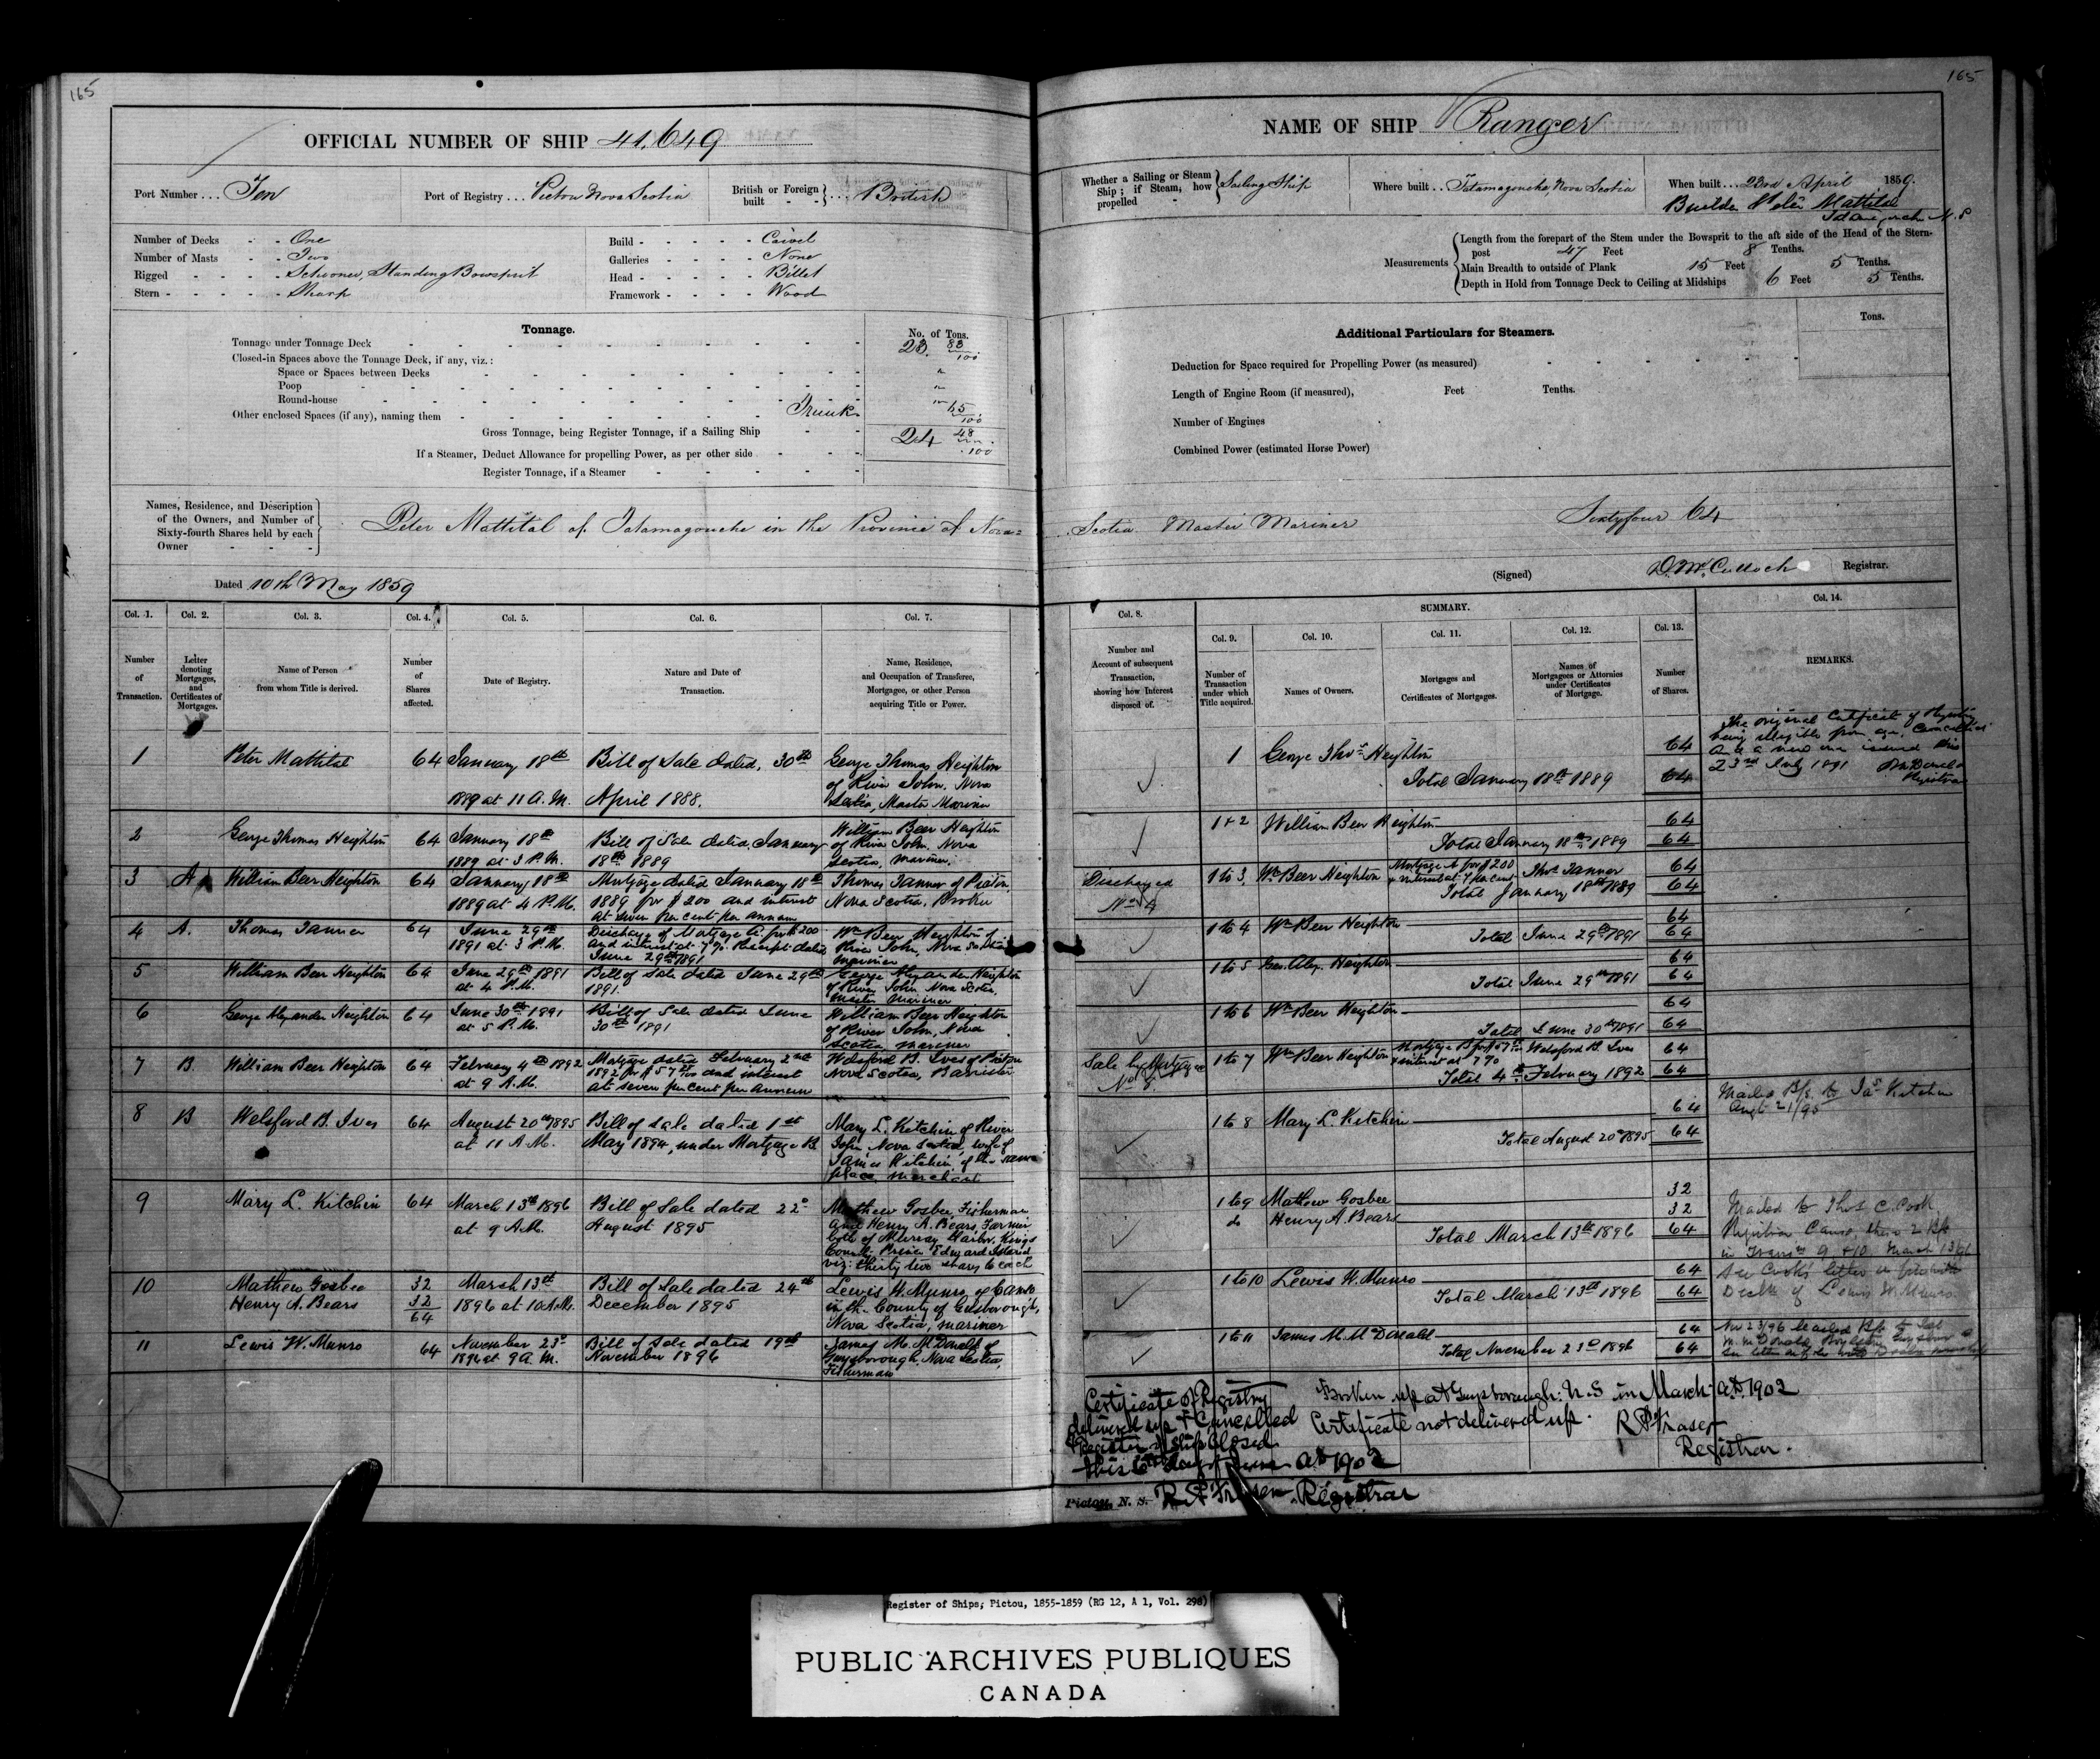 165
OFFICIAL NUMBER OF SHIP 41,649
Port Number ... Ten
Port of Registry ... Pictou Nova Scotia
British or Foreign built - - } ... British
Number of Decks - - One
Number of Masts - - Two
Rigged - - - - Schooner, Standing Bowsprit
Stern - - - - - Sharp
Build - - - - - Carvel
Galleries - - - - None
Head - - - - - Billet
Framework - - - - Wood
Tonnage.
No. of Tons.
Tonnage under Tonnage Deck 23. 83/100
Closed-in Spaces above the Tonnage Deck, if any, viz.:
Space or Spaces between Decks "
Poop "
Round-house "
Other enclosed Spaces (if any), naming them Trunk 65/100
Gross Tonnage, being Register Tonnage, if a Sailing Ship 24 48/100
If a Steamer, Deduct Allowance for propelling Power, as per other side
Register Tonnage, if a Steamer
Names, Residence, and Description
of the Owners, and Number of
Sixty-fourth Shares held by each
Owner
Peter Mattital of Tatamagouche in the Province of Nova=
Dated 10th May 1859
Col. 1. Col. 2. Col. 3. Col. 4. Col. 5. Col. 6. Col. 7.
Number of Transaction.
Letter denoting Mortgages, and Certificates of Mortgages.
Name of Person from whom Title is derived.
Number of Shares affected.
Date of Registry.
Nature and Date of Transaction.
Name, Residence, and Occupation of Transferee, Mortgagee, or other Person acquiring Title or Power.
1 Peter Mattital 64 January 18th Bill of Sale dated, 30th George Thomas Heighton
1889 at 11 A.M. April 1888. of River John, Nova
Scotia, Master Mariner
2 George Thomas Heighton 64 January 18th Bill of Sale dated January William Beer Heighton
1889 at 3 P.M. 18th 1889 of River John, Nova
Scotia, Mariner.
3 A William Beer Heighton 64 January 18th Mortgage dated January 18th Thomas Tanner of Pictou,
1889 at 4 P.M. 1889 for $200 and interest Nova Scotia, Broker
at seven per cent per annum
4 A. Thomas Tanner 64 June 29th Discharge of Mortgage A. for $200 Wm Beer Heighton of
1891 at 3 P.M. and interest at 7 %. Receipt dated River John, Nova Scotia
June 29th 1891 Mariner
5 William Beer Heighton 64 June 29th 1891 Bill of Sale dated June 29th George Alexander Heighton
at 4 P.M. 1891. of River John Nova Scotia,
Master Mariner
6 George Alexander Heighton 64 June 30th 1891 Bill of Sale dated June William Beer Heighton
at 5 P.M. 30th 1891 of River John, Nova
Scotia Mariner
7 B. William Beer Heighton 64 February 4th 1892 Mortgage dated February 2nd Welsford B. Ives of Pictou
at 9 A.M. 1892 for $57 and interest Nova Scotia, Barrister
at seven per cent per annum
8 B Welsford B. Ives 64 August 20th 1895 Bill of sale dated 1st Mary L. Kitchin of River
at 11 A.M. May 1894, under Mortgage B John Nova Scotia, wife of
James Kitchin of the same
place merchant
9 Mary L. Kitchin 64 March 13th 1896 Bill of Sale dated 22d Mathew Gosbee, Fisherman
at 9 A.M. August 1895 and Henry A. Bears, Farmer
both of Murray Harbor, Kings
County Prince Edward Island
viz: thirty two shares to each
10 Matthew Gosbee 32 March 13th Bill of Sale dated 24th Lewis W. Munro of Canso
Henry A. Bears 32 1896 at 10 A.M. December 1895 in the County of Guysborough,
64 Nova Scotia, Mariner
11 Lewis W. Munro 64 November 23d Bill of Sale dated 19th James M. McDonald of
1896 at 9 A.M. November 1896 Guysborough, Nova Scotia,
Fisherman
165
NAME OF SHIP Ranger
Whether a Sailing or Steam Ship; if Steam, how propelled - } Sailing Ship
Where built .. Tatamagouche Nova Scotia
When built ... 23rd April 1859.
Builder Peter Mattital
Measurements
Length from the forepart of the Stem under the Bowsprit to the aft side of the Head of the Stern-
post 47 Feet 8 Tenths.
Main Breadth to outside of Plank 15 Feet 5 Tenths.
Depth in Hold from Tonnage Deck to Ceiling at Midships 6 Feet 5 Tenths.
Additional Particulars for Steamers.
Tons.
Deduction for Space required for Propelling Power (as measured)
Length of Engine Room (if measured), Feet Tenths.
Number of Engines
Combined Power (estimated Horse Power)
Scotia Master Mariner Sixtyfour 64
(Signed) D. McCulloch Registrar.
Col. 8. SUMMARY. Col. 14.
Col. 9. Col. 10. Col. 11. Col. 12. Col. 13.
Number and Account of subsequent Transaction, showing how Interest disposed of.
Number of Transaction under which Title acquired.
Names of Owners.
Mortgages and Certificates of Mortgages.
Names of Mortgagees or Attornies under Certificates of Mortgage.
Number of Shares.
REMARKS.
The original Certificate of Registry
being illegible from age, Cancelled
and a new one issued this
23rd July 1891
Registrar
1 George Thos. Heighton 64
Total January 18th 1889 64
1 & 2 William Beer Heighton 64
Total January 18th 1889 64
Discharged No 4
1 to 3 Wm Beer Heighton Mortgage A for $200 & interest at 7 per cent Thos Tanner 64
Total January 18th 1889 64
1 to 4 Wm Beer Heighton 64
Total June 29th 1891 64
1 to 5 Geo. Alex. Heighton 64
Total June 29th 1891 64
1 to 6 Wm Beer Heighton 64
Total June 30th 1891 64
Sale by Mortgagee No 8.
1 to 7 Wm Beer Heighton Mortgage B for $57 & interest at 7 % Welsford B. Ives 64
Total 4th February 1892 64
1 to 8 Mary L. Kitchin 64
Total August 20th 1895 64
Mailed B/s. to Jas. Kitchin
Augt 21/95
1 to 9 Mathew Gosbee 32
do Henry A. Bears 32
Total March 13th 1896 64
Mailed to Thos C. Cook
Registrar Canso, these 2 B/s
in Transns 9 & 10 March 13/96
1 to 10 Lewis W. Munro 64
Total March 13th 1896 64
See Cook's letter
Lewis W. Munro
1 to 11 James M. McDonald 64
Total November 23d 1896 64
Nov 23/96 Mailed B/s to
Certificate of Registry
delivered up & Cancelled
& Register of Ship Closed
this 6th day of June AD 1902
Pictou, N. S. R P Fraser Registrar
Broken up at Guysborough. N. S in March AD. 1902
Certificate not delivered up. R P Fraser
Registrar.
Register of Ships; Pictou, 1855-1859 (RG 12, A 1, Vol. 298)
PUBLIC ARCHIVES PUBLIQUES
CANADA